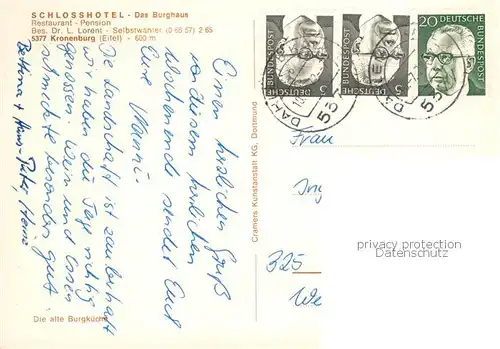 SCHLOSSHOTEL - Das Burghaus
Restaurant - Pension
Bes. Dr. L. Lorent - Selbstwähler (0 65 57) 2 65
5377 Kronenburg (Eifel) - 600 m
Einen herzlichen Gruß
von diesem herrlichen
Wochenende sendet Euch
Eure Manni.
Die Landschaft ist zauberhaft
wir haben die Tage richtig
genossen. Wein und Essen
schmeckte besonders gut.
Bettina + Hans-Peter, Heinz
Die alte Burgküche
Cramers Kunstanstalt KG, Dortmund
5
DEUTSCHE BUNDESPOST
5
DEUTSCHE BUNDESPOST
20 DEUTSCHE
BUNDESPOST
DAHLEM
537
Frau
Ing
325
We
privacy protection
Datenschutz